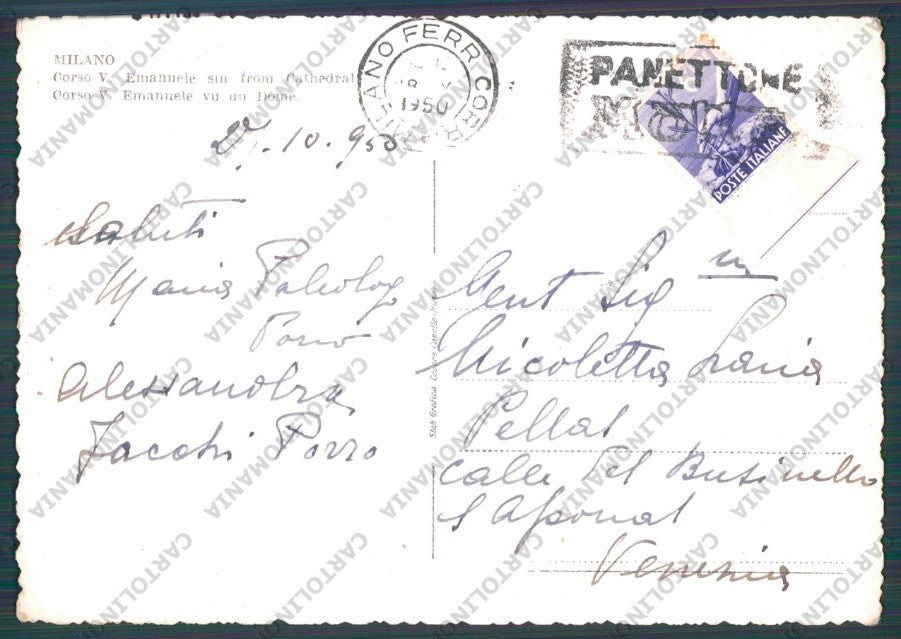 MILANO
Corso V. Emanuele sin from Cathedral
Corso V. Emanuele vu du Dome.
MILANO FERR. CORR.
1950
PANETTONE
MOTTA
POSTE ITALIANE
10. 950
Saluti
Maria Paleologo
Porro
Alessandra
Jacchi Porro
Gent Sig
Nicoletta
Pellat
calle del Businello
S Aponal
Venezia
Stab Grafico Cesare
CARTOLINOMANIA